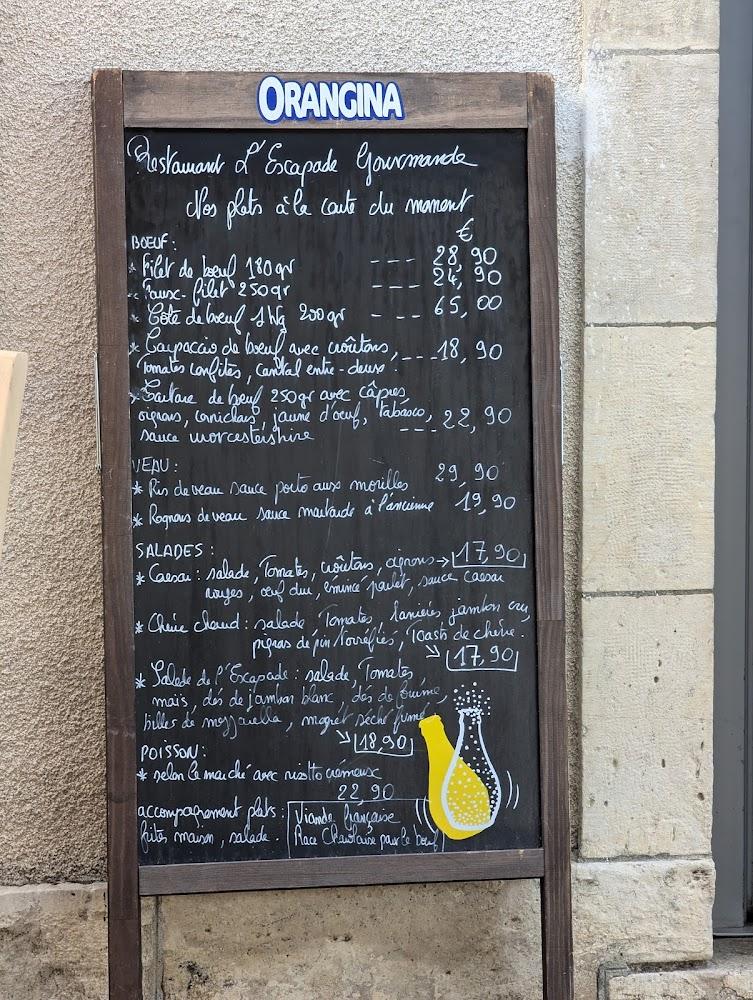 ORANGINA
Restaurant L'Escapade Gourmande
Nos plats à la carte du moment
€
BOEUF :
* Filet de boeuf 180gr --- 28,90
* Faux-filet 250gr --- 24,90
* Côte de boeuf 1kg 200gr --- 65,00
* Carpaccio de boeuf avec croûtons, --- 18,90
Tomates confites, cantal entre-deux.
* Tartare de boeuf 250gr avec câpres
oignons, cornichons, jaune d'oeuf, tabasco, --- 22,90
sauce worcestershire
VEAU :
* Ris de veau sauce porto aux morilles 29,90
* Rognons de veau sauce moutarde à l'ancienne 19,90
SALADES :
* Caesar : salade, Tomates, croûtons, oignons → 17,90
rouges, oeuf dur, émincé poulet, sauce caesar
* Chèvre chaud : salade, Tomates, lanières jambon cru,
pignons de pin torréfiés, Toasts de chèvre.
↘ 17,90
* Salade de l'Escapade : salade, Tomates
maïs, dés de jambon blanc, dés de
billes de mozzarella, magret séché fumé
↘ 18,90
POISSON :
* selon le marché avec risotto crémeux
22,90
accompagnement plats :
frites maison, salade.
Viande française
Race Charolaise pour le boeuf